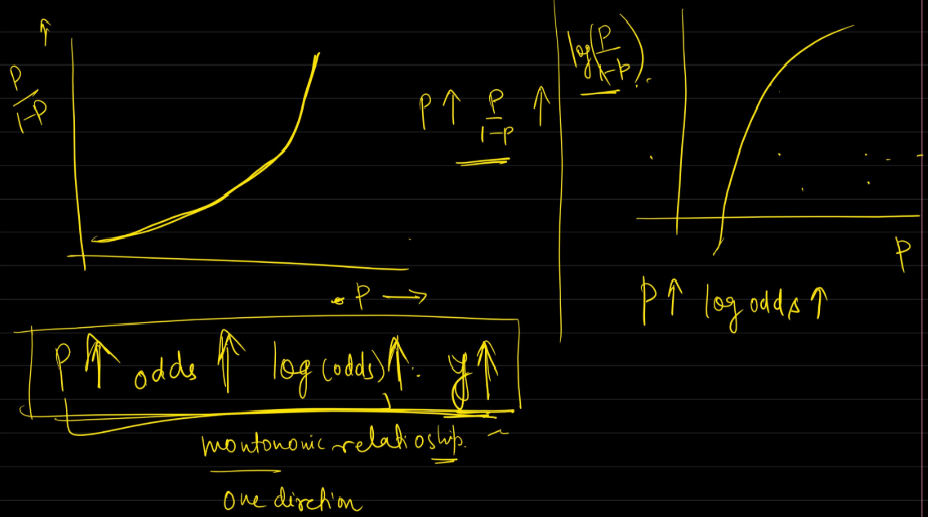 ↑
P/1-P
P ↑ P/1-P ↑
• P →
log(P/1-P)
P
P↑ log odds ↑
P ↑ odds ↑ log(odds) ↑. y ↑
montonomic relatioship.
one dirction